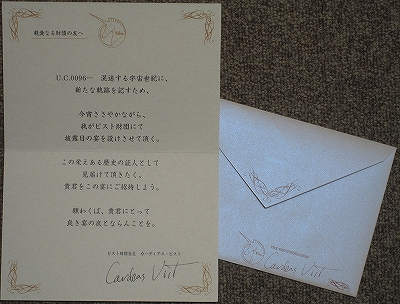 親愛なる財団の友へ
U.C.0096― 混迷する宇宙世紀に、
新たな軌跡を記すため、
今宵ささやかながら、
我がビスト財団にて
披露目の宴を設けさせて頂く。
この栄えある歴史の証人として
見届けて頂きたく、
貴君をこの宴にご招待しよう。
願わくば、貴君にとって
良き宴の夜とならんことを。
ビスト財団当主 カーディアス・ビスト
Cardeas Vist
Cardeas Vist